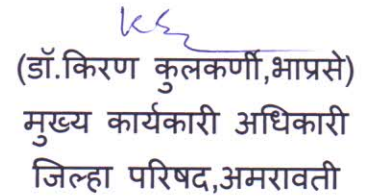 (डॉ.किरण कुलकर्णी,भाप्रसे)
मुख्य कार्यकारी अधिकारी
जिल्हा परिषद,अमरावती